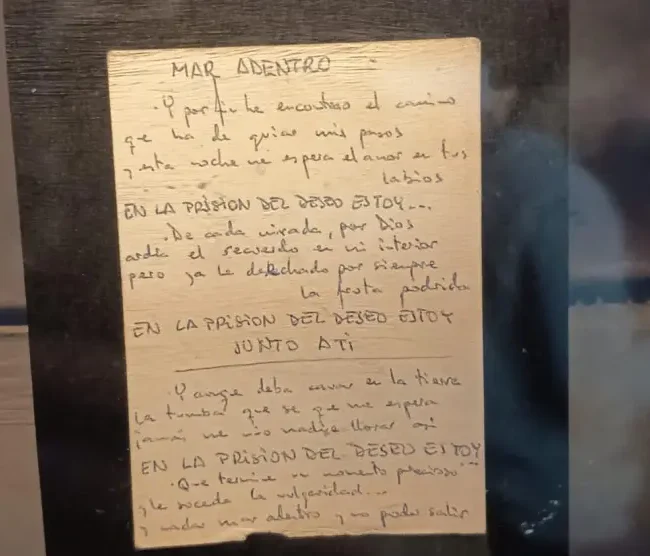 MAR ADENTRO
.Y por fin he encontrado el camino
que ha de guiar mis pasos
y esta noche me espera el amor en tus
labios
EN LA PRISION DEL DESEO ESTOY...
.De cada mirada, por Dios
ardía el recuerdo en mi interior
pero ya he desechado por siempre
la fruta podrida
EN LA PRISION DEL DESEO ESTOY
JUNTO A TI
.Y aunque deba cavar en la tierra
la tumba que se que me espera
jamás me vio nadie llorar así
EN LA PRISION DEL DESEO ESTOY...
.Que termine un momento precioso
y le suceda la vulgaridad...
y nadar mar adentro y no poder salir